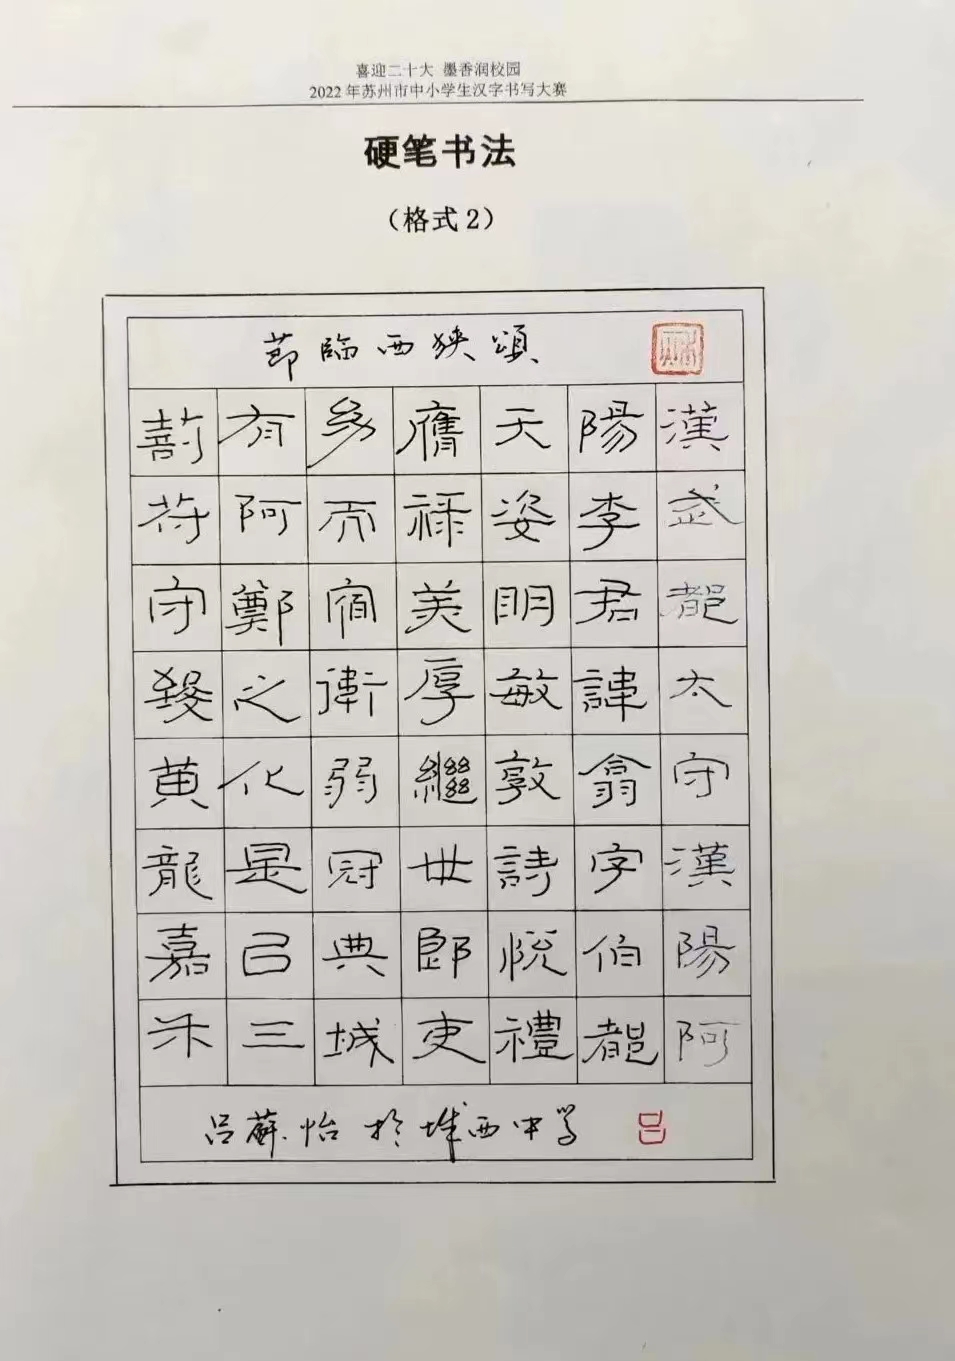 喜迎二十大 墨香润校园
2022年苏州市中小学生汉字书写大赛
硬笔书法
（格式2）
節臨西狹頌
漢武都太守漢陽阿
陽李君諱翕字伯都
天姿明敏敦詩悅禮
膺祿美厚繼世郎吏
幼而宿衛弱冠典城
有阿鄭之化是㠯三
剖符守致黃龍嘉禾
吕蘇怡於城西中學
吕